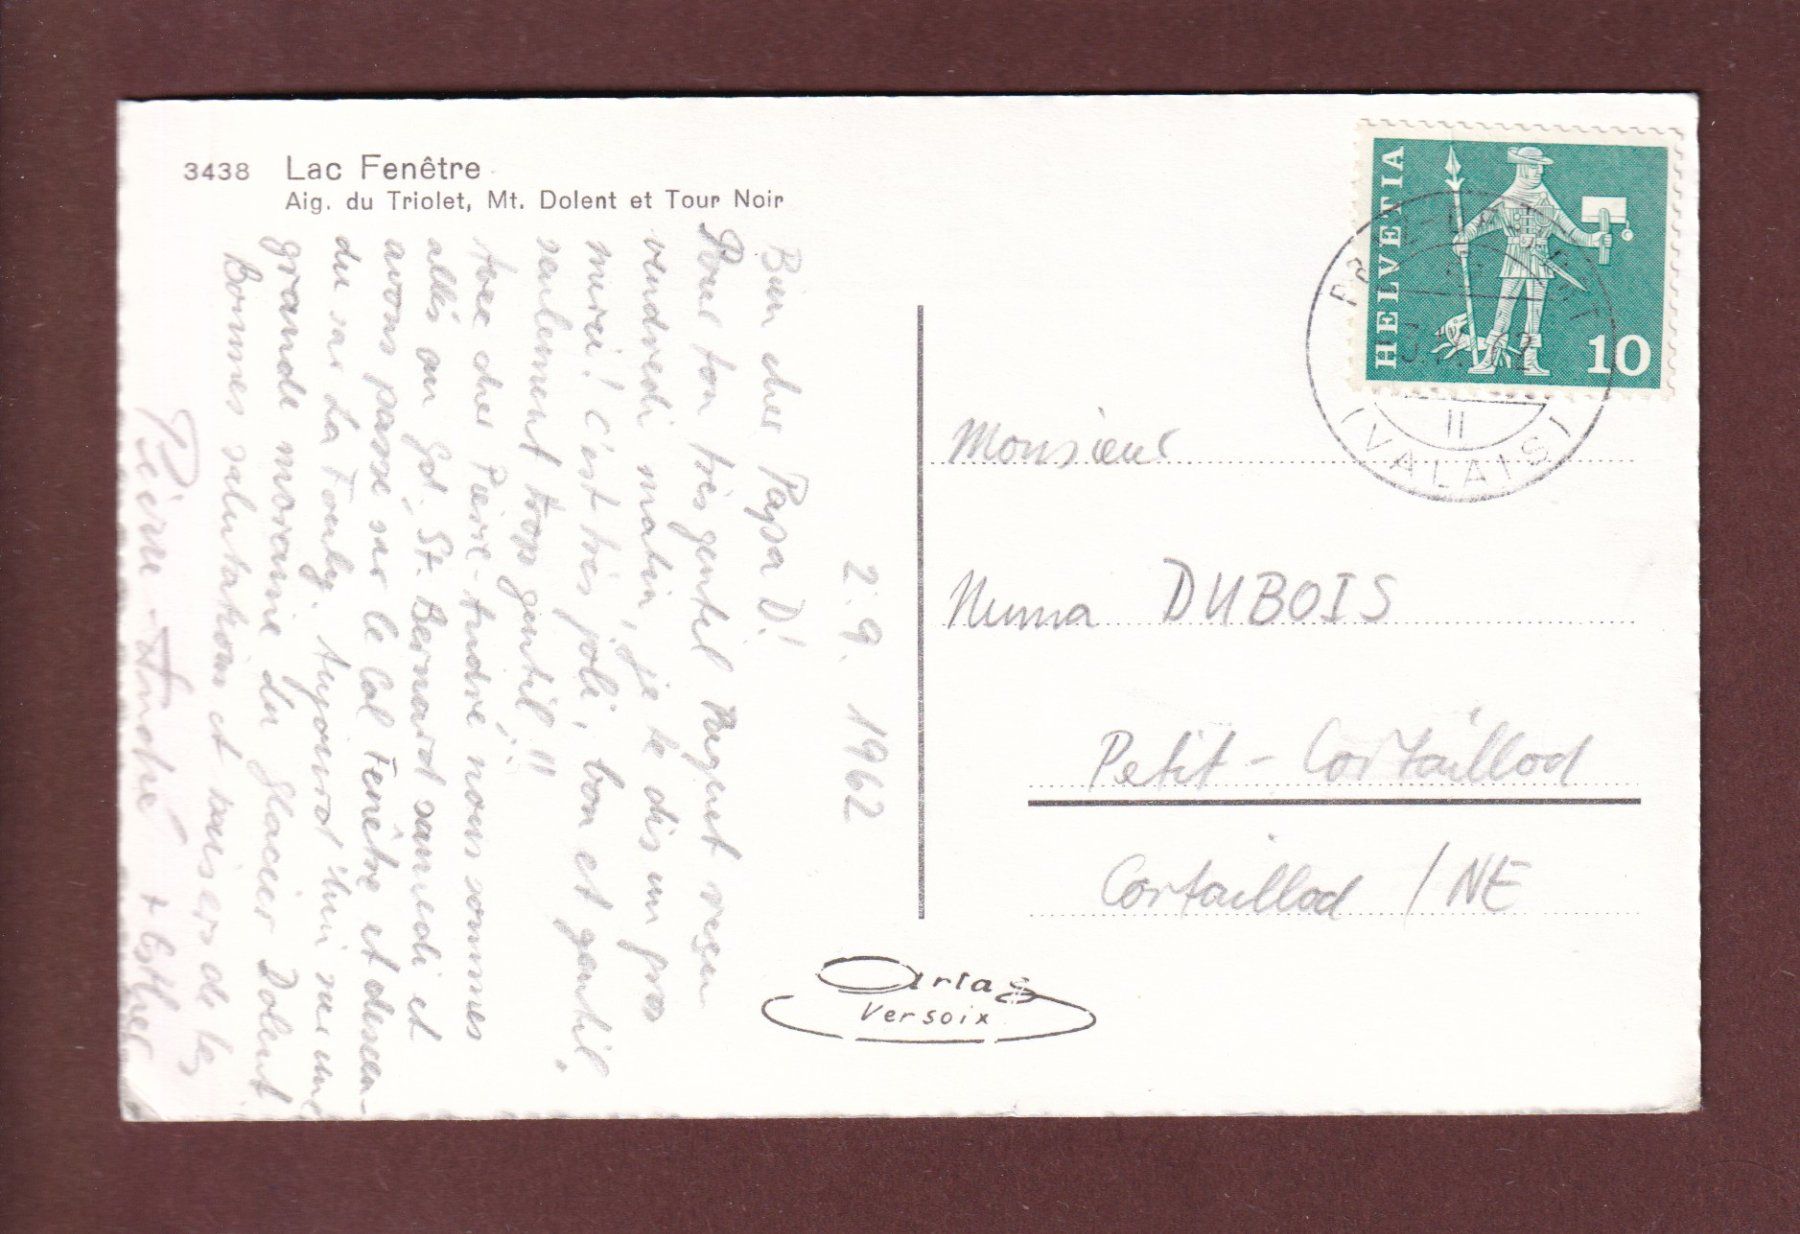 3438 Lac Fenêtre
Aig. du Triolet, Mt. Dolent et Tour Noir
2.9.1962
Bien cher Papa D!
Pour ton très gentil paquet reçu
vendredi matin, je te dis un gros
merci! c'est très joli, bon et gentil,
seulement trop gentil!!
Avec cher Pierre-André nous sommes
allés au Gd. St. Bernard samedi et
avons passé sur le Col Fenêtre et descen-
du sur La Fouly. Aujourd'hui sur une
grande moraine du glacier Dolent
Bonnes salutations et baisers de tes
Pierre-André + Esther
HELVETIA
10
PRAZ-DE-FORT
II
(VALAIS)
Monsieur
Numa DUBOIS
Petit-Cortaillod
Cortaillod / NE
Artas
Versoix